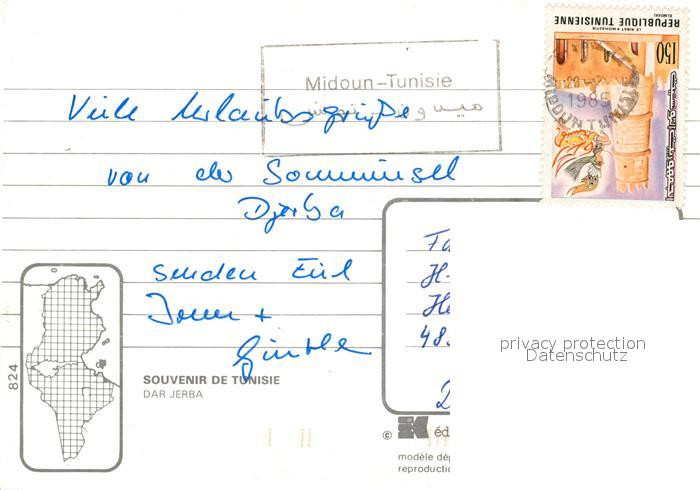 REPUBLIQUE TUNISIENNE
LE RIBAT * MONASTIR
ELMEKKI
150
1985
MIDOUN TUNISIE
Midoun-Tunisie
ميدون تونس
Viele Urlaubsgrüße
von der Sonneninsel
Djerba
senden Euch
+
Günther
Fa
H-
He
48
824
SOUVENIR DE TUNISIE
DAR JERBA
privacy protection
Datenschutz
© éd
modèle dép
reproductio